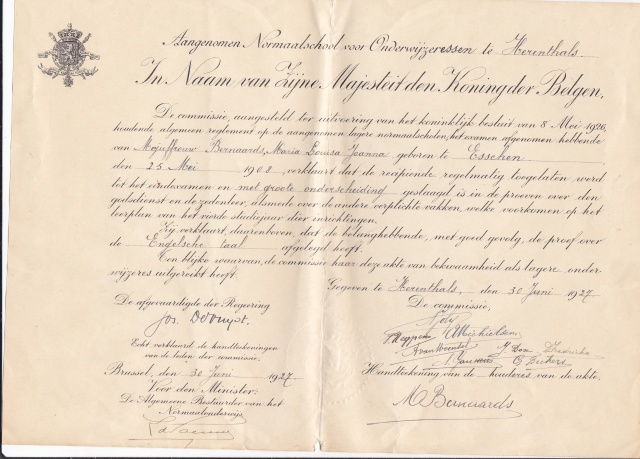 Aangenomen Normaalschool voor Onderwijzeressen te Herenthals
In Naam van Zijne Majesteit den Koning der Belgen.
De commissie, aangesteld ter uitvoering van het koninklijk besluit van 8 Mei 1926,
houdende algemeen reglement op de aangenomen lagere normaalscholen, het examen afgenomen hebbende
van Mejuffrouw Bernaards, Maria Louisa Joanna geboren te Esschen
den 25 Mei 1908, verklaart dat de recipiende regelmatig toegelaten werd
tot het eindexamen en met groote onderscheiding geslaagd is in de proeven over den
godsdienst en de zedenleer, alsmede over de andere verplichte vakken, welke voorkomen op het
leerplan van het vierde studiejaar dier inrichtingen.
Zij verklaart, daarenboven, dat de belanghebbende, met goed gevolg, de proef over
de Engelsche taal afgelegd heeft.
Ten blijke waarvan, de commissie haar deze akte van bekwaamheid als lagere onder-
wijzeres uitgereikt heeft.
Gegeven te Herenthals, den 30 Juni 1927.
De afgevaardigde der Regeering
De commissie,
Jos.
Michielsen
Echt verklaard de handteekeningen
van de leden der commissie.
Brussel, den 30 Juni 1927
Handteekening van de houderes van de akte.
Voor den Minister:
De Algemeene Bestuurder van het
Normaalonderwijs
M Bernaards